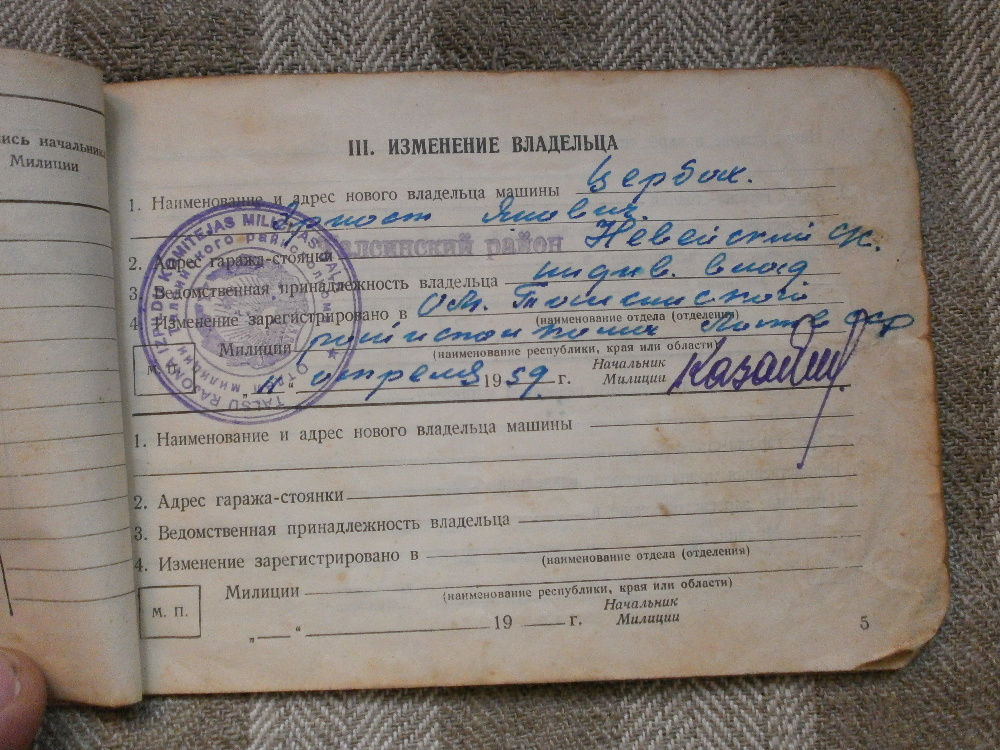 ись начальника
Милиции
III. ИЗМЕНЕНИЕ ВЛАДЕЛЬЦА
1. Наименование и адрес нового владельца машины Цербах.
Эрнест Янович.
Талсинский район Невейский с/с.
2. Адрес гаража-стоянки
3. Ведомственная принадлежность владельца индив. влад
4. Изменение зарегистрировано в ОМ. Талсинского
(наименование отдела (отделения)
Милиции
(наименование республики, края или области)
М. П.
„11“ апреля 1959. г.
Начальник
Милиции
TALSU RAJONA IZPILDU KOMITEJAS MILICIJAS DAĻA
1. Наименование и адрес нового владельца машины
2. Адрес гаража-стоянки
3. Ведомственная принадлежность владельца
4. Изменение зарегистрировано в
(наименование отдела (отделения)
Милиции
(наименование республики, края или области)
М. П.
„ “ 19 г.
Начальник
Милиции
5